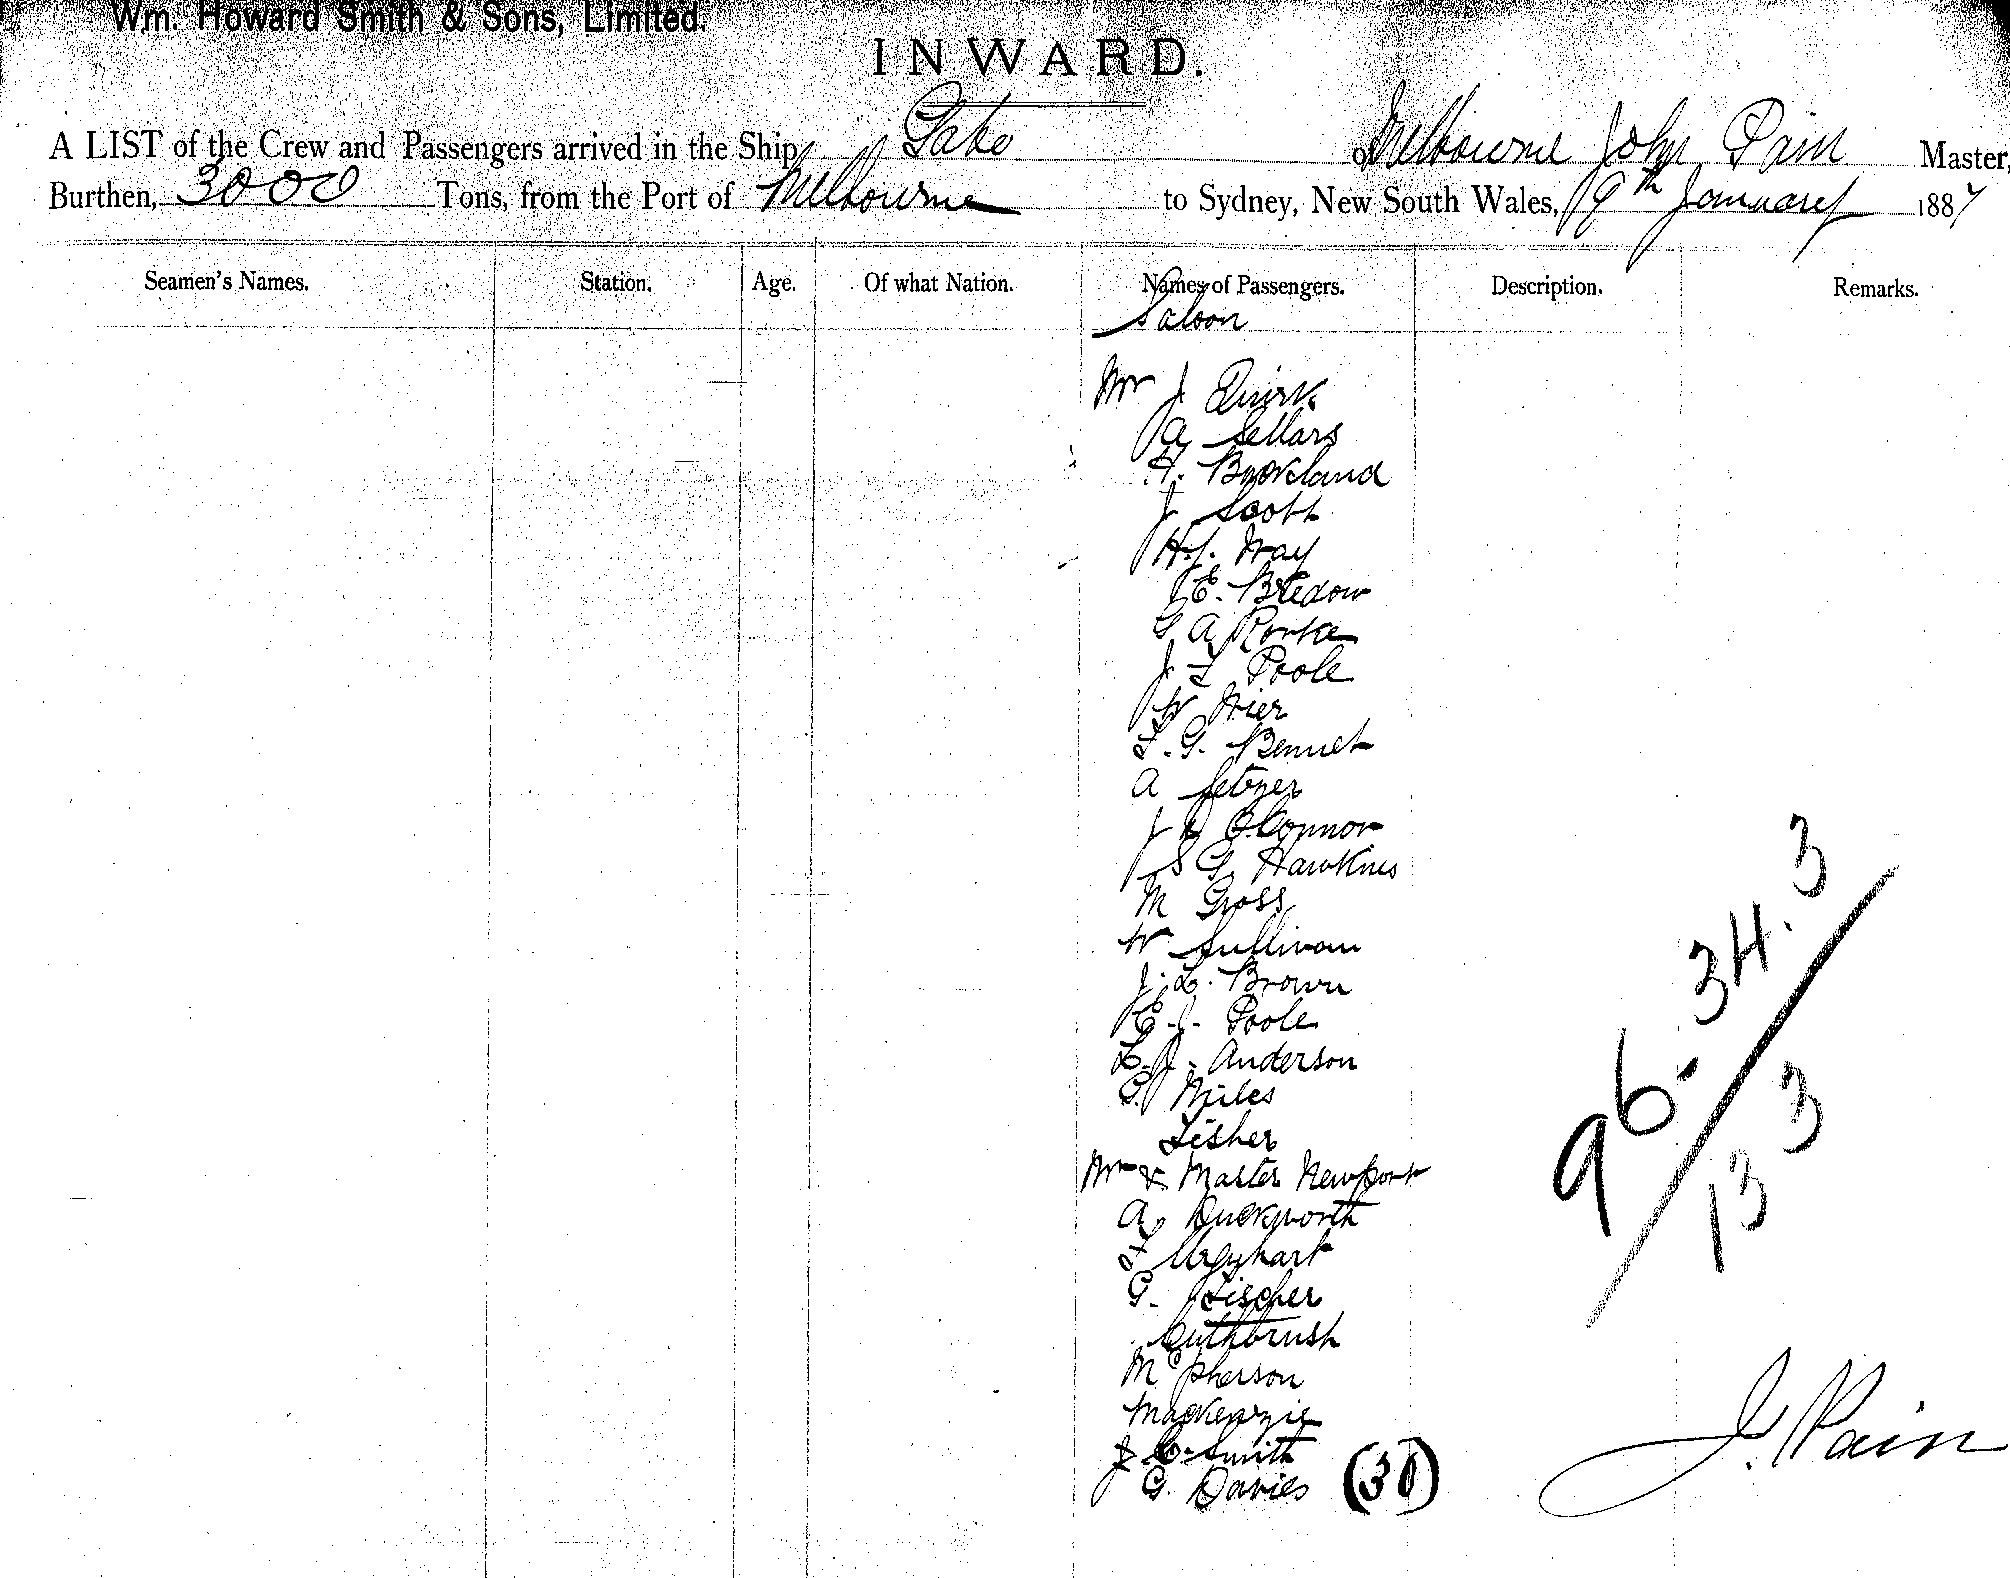 Wm. Howard Smith & Sons, Limited.
INWARD.
A LIST of the Crew and Passengers arrived in the Ship Gabo of Melbourne John Pain Master,
Burthen, 3000 Tons, from the Port of Melbourne to Sydney, New South Wales, 19th January 1887
Seamen's Names. Station. Age. Of what Nation. Names of Passengers. Description. Remarks.
Saloon
Mr J. Quirk
A Sellars
H. Buckland
J Scott
H.J. Way
J E. Bredow
G A Rorke
J F Poole
W Wier
F. G. Bennet
A
J D O'Connor
S G Hawkins
M Gross
W Sullivan
J. L. Brown
E. J. Poole
L. J. Anderson
G. Miles
Fisher
Mr & Master Newport
A Duckworth
F Urquhart
G. Fischer
Cuthbrush
McPherson
Mackenzie
J C. Smith
G. Davies (30)
96. 34. 3
133
J. Pain